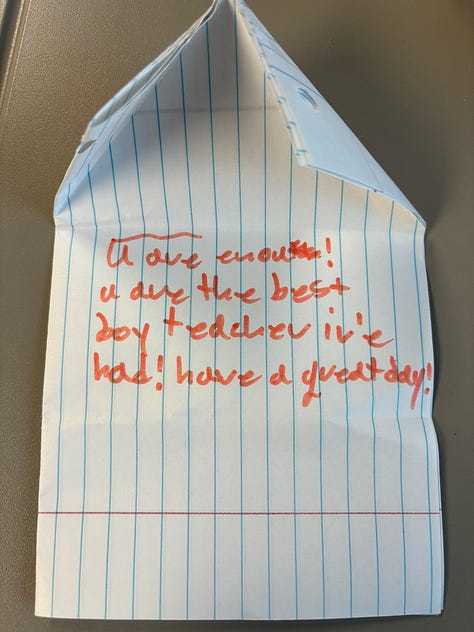 U are enough!
u are the best
boy teacher iv'e
had! have a great day!